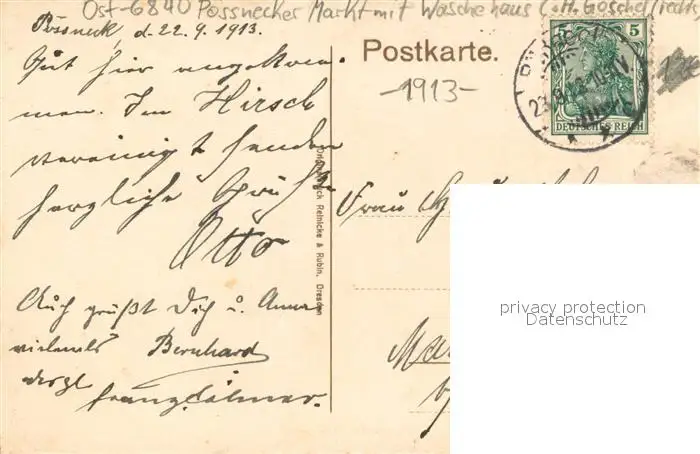 Ost-6840 Pössnecker Markt mit Waschehaus C.H. Göschel
Pössneck, d. 22.9.1913.
Postkarte.
-1913-
5
DEUTSCHES REICH
Gut hier angekom-
men. Im Hirsch
vereinigt senden
herzliche Grüße
Otto
Auch grüßt Dich u. Anna
vielmals Bernhard
Originaldruck Reinicke & Rubin, Dresden
Frau
privacy protection
Datenschutz